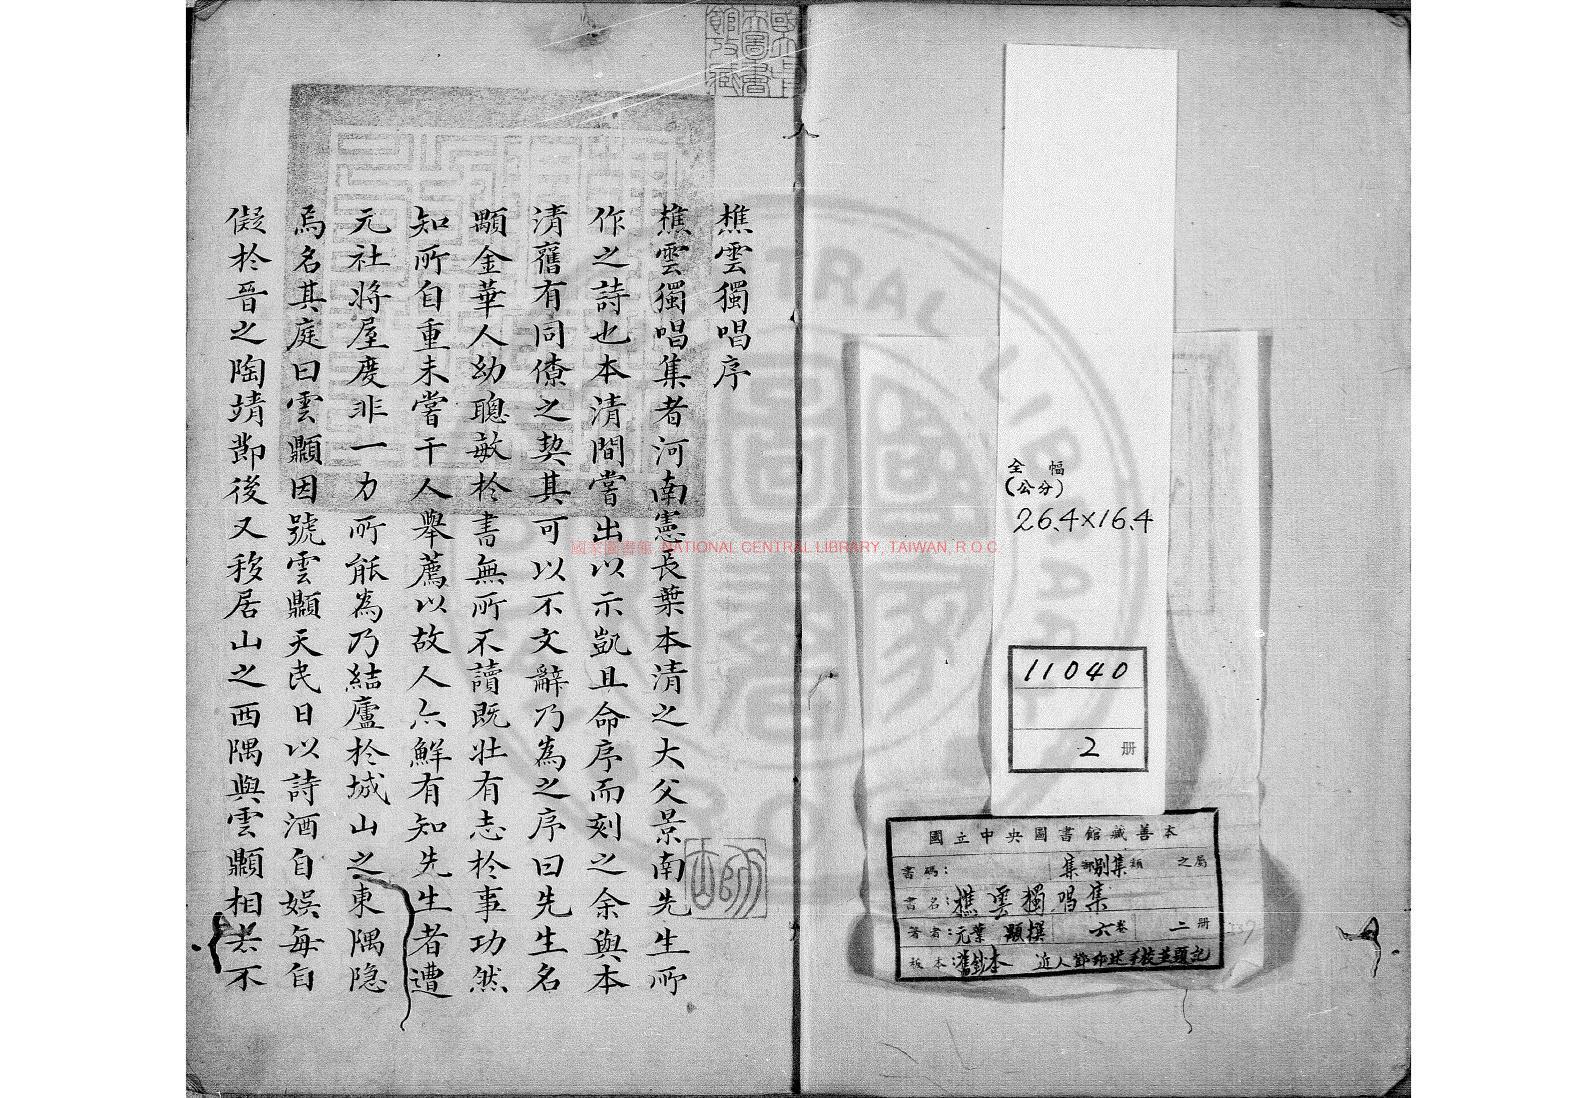 全幅
(公分)
26.4×16.4
11040
2 册
國立中央圖書館藏善本
書碼： 集部別集類 之屬
書名：樵雲獨唱集
著者：元葉顒撰 六卷 二册
板本：舊鈔本 近人鄧邦述手校並題記
樵雲獨唱序
樵雲獨唱集者河南憲長葉本清之大父景南先生所
作之詩也本清間嘗出以示凱且命序而刻之余與本
清舊有同僚之契其可以不文辭乃為之序曰先生名
顒金華人幼聰敏於書無所不讀既壯有志於事功然
知所自重未嘗干人舉薦以故人亦鮮有知先生者遭
元社將屋度非一力所能為乃結廬於城山之東隅隐
焉名其庭曰雲顒因號雲顒天民日以詩酒自娛每自
儗於晉之陶靖節後又移居山之西隅與雲顒相去不
國家圖書館 NATIONAL CENTRAL LIBRARY, TAIWAN, R.O.C